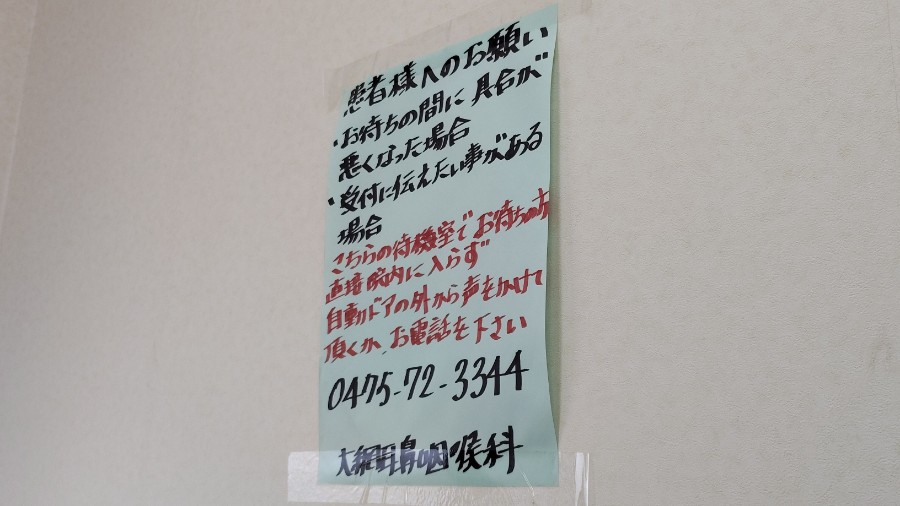 患者様へのお願い
・お待ちの間に具合が
悪くなった場合
・受付に伝えたい事がある
場合
こちらの待機室でお待ちの方
直接院内に入らず
自動ドアの外から声をかけて
頂くか、お電話を下さい
0475-72-3344
大網耳鼻咽喉科